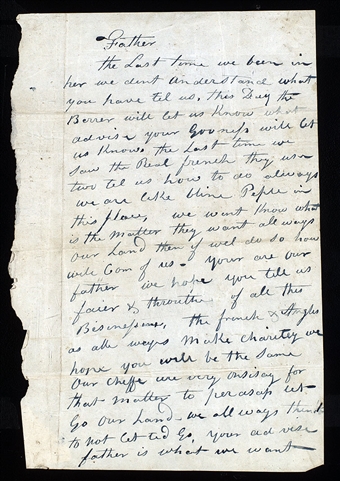 Father
the Last time we been in
her we dont Understand what
you have tel us, this Day the
Barer will let us Know what
advise your Goodness will let
us Know, the Last time we
saw the Real french they use
two tel us how to do always
we are like bline Peple in
this place, we want Know what
is the matter they want allways
Our Land then if wel do so how
will Com of us. your are our
father we hope you tell us
faier & throuthe of all this
Bisinesses, the french & Angles
as alle ways Make charitey we
hope you will be the same
Our Cheffs are very onsisay for
that matter to per as as let
Go Our Land - we all ways think
to not let ted Go, your advise
father is what we want